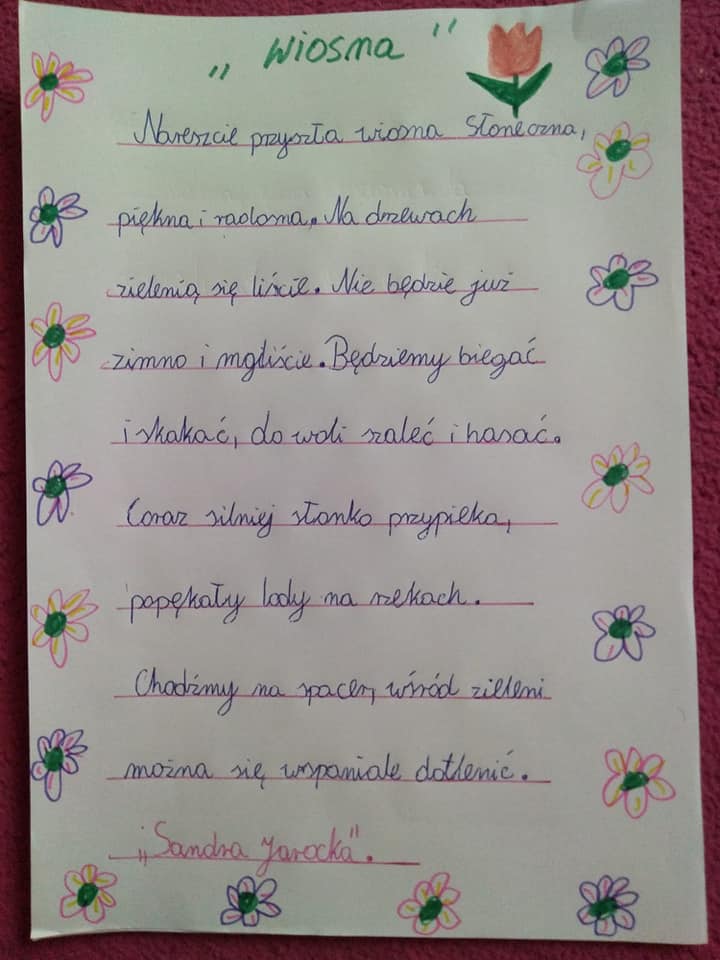 „ Wiosna "
Nareszcie przyszła wiosna słoneczna,
piękna i radosna. Na drzewach
zielenią się liście. Nie będzie już
zimno i mgliście. Będziemy biegać
i skakać, do woli szaleć i hasać.
Coraz silniej słonko przypieka,
popękały lody na rzekach.
Chodźmy na spacer, wśród zieleni
można się wspaniale dotlenić.
„Sandra Jarocka".